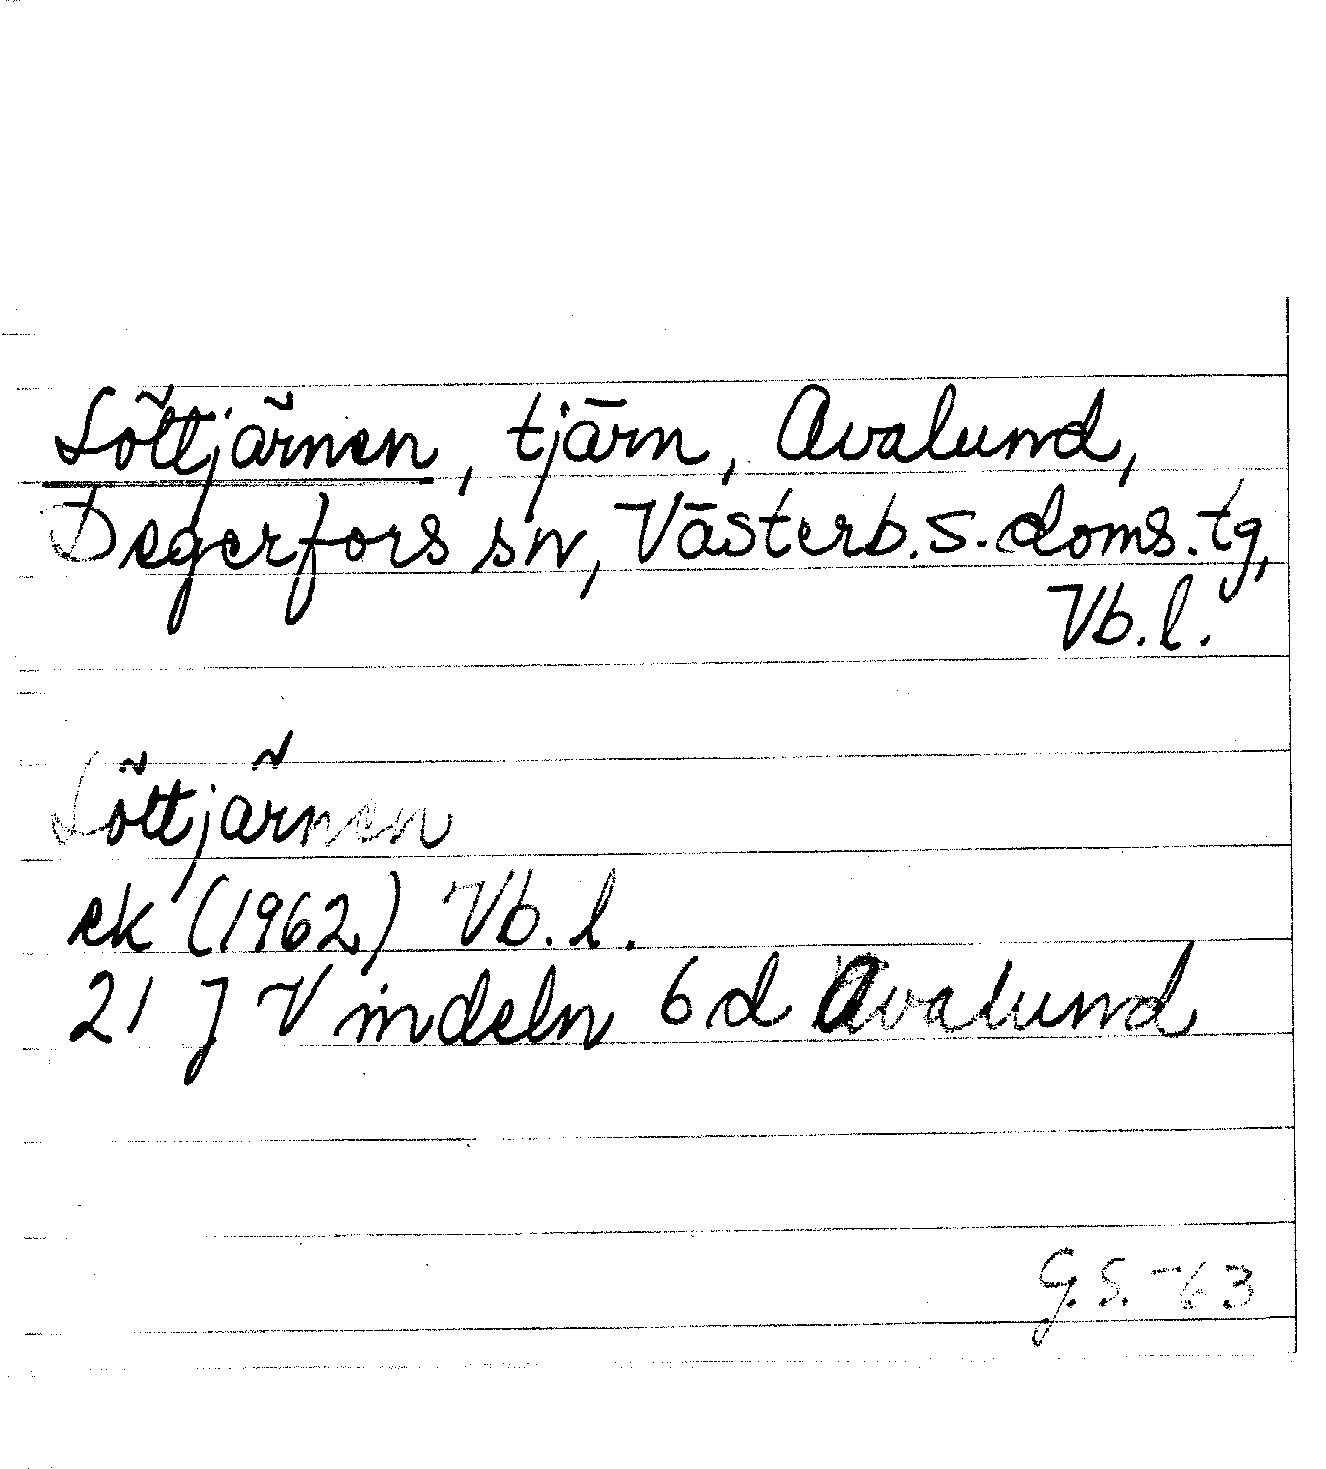 Löttjärnen, tjärn, Avalund,
Degerfors sn, Västerb.s.doms.tg,
Vb.l.
Löttjärnen
ek (1962) Vb.l.
21 J Vindeln 6d Avalund
G.S.-63